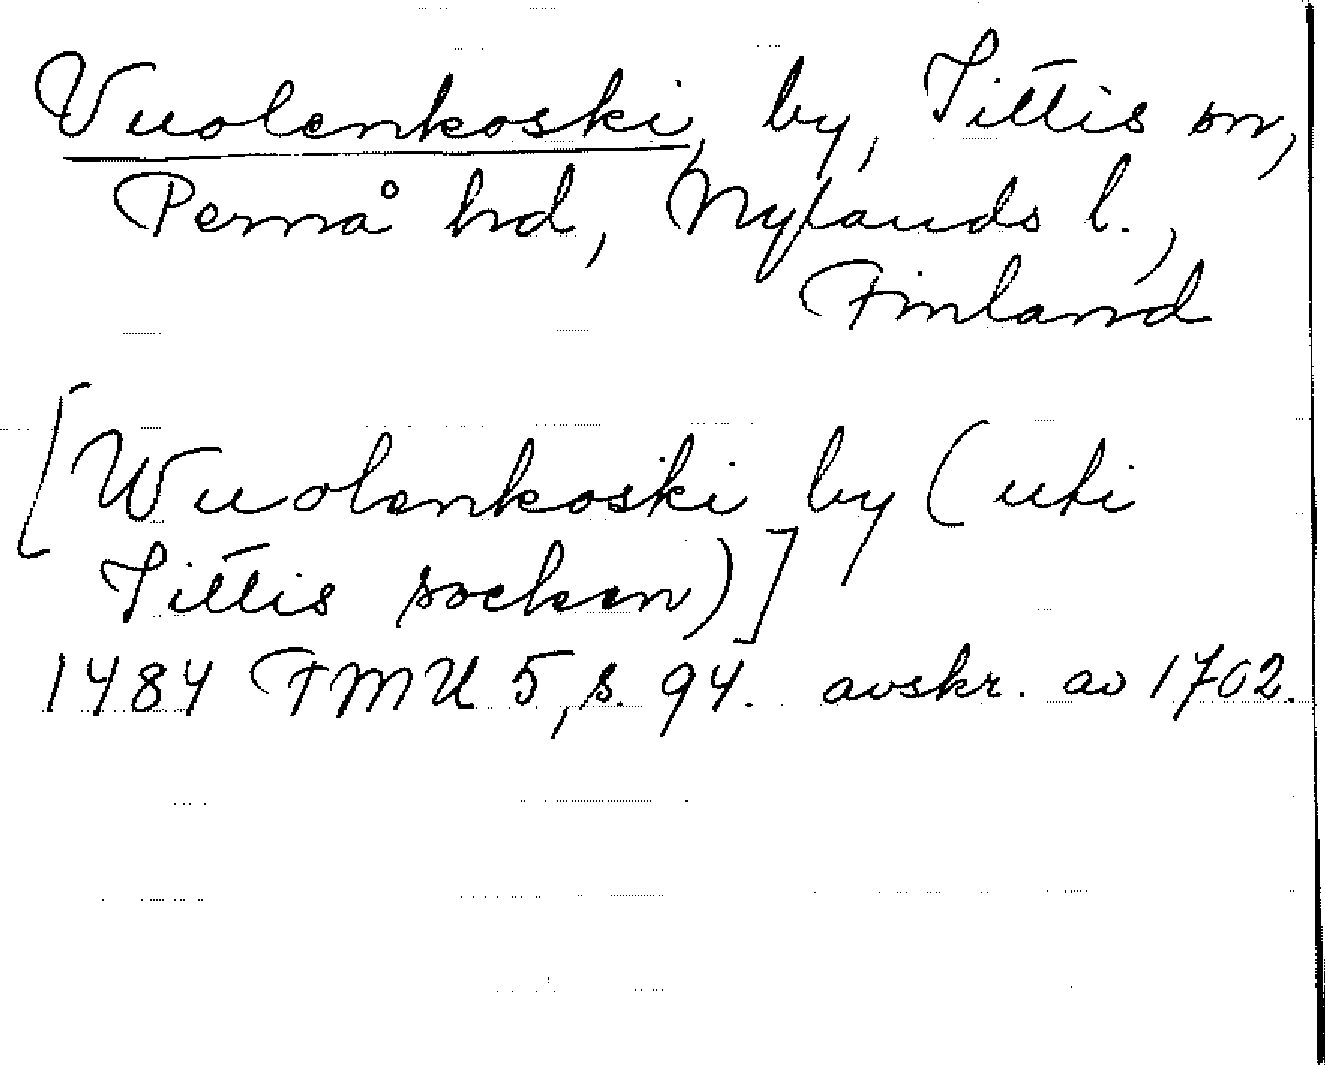 Vuolenkoski, by, Iittis sn,
Pernå hd, Nylands l.,
Finland
[Wuolenkoski by (uti
Iittis socken)]
1484 FMU 5, s. 94. avskr. av 1702.